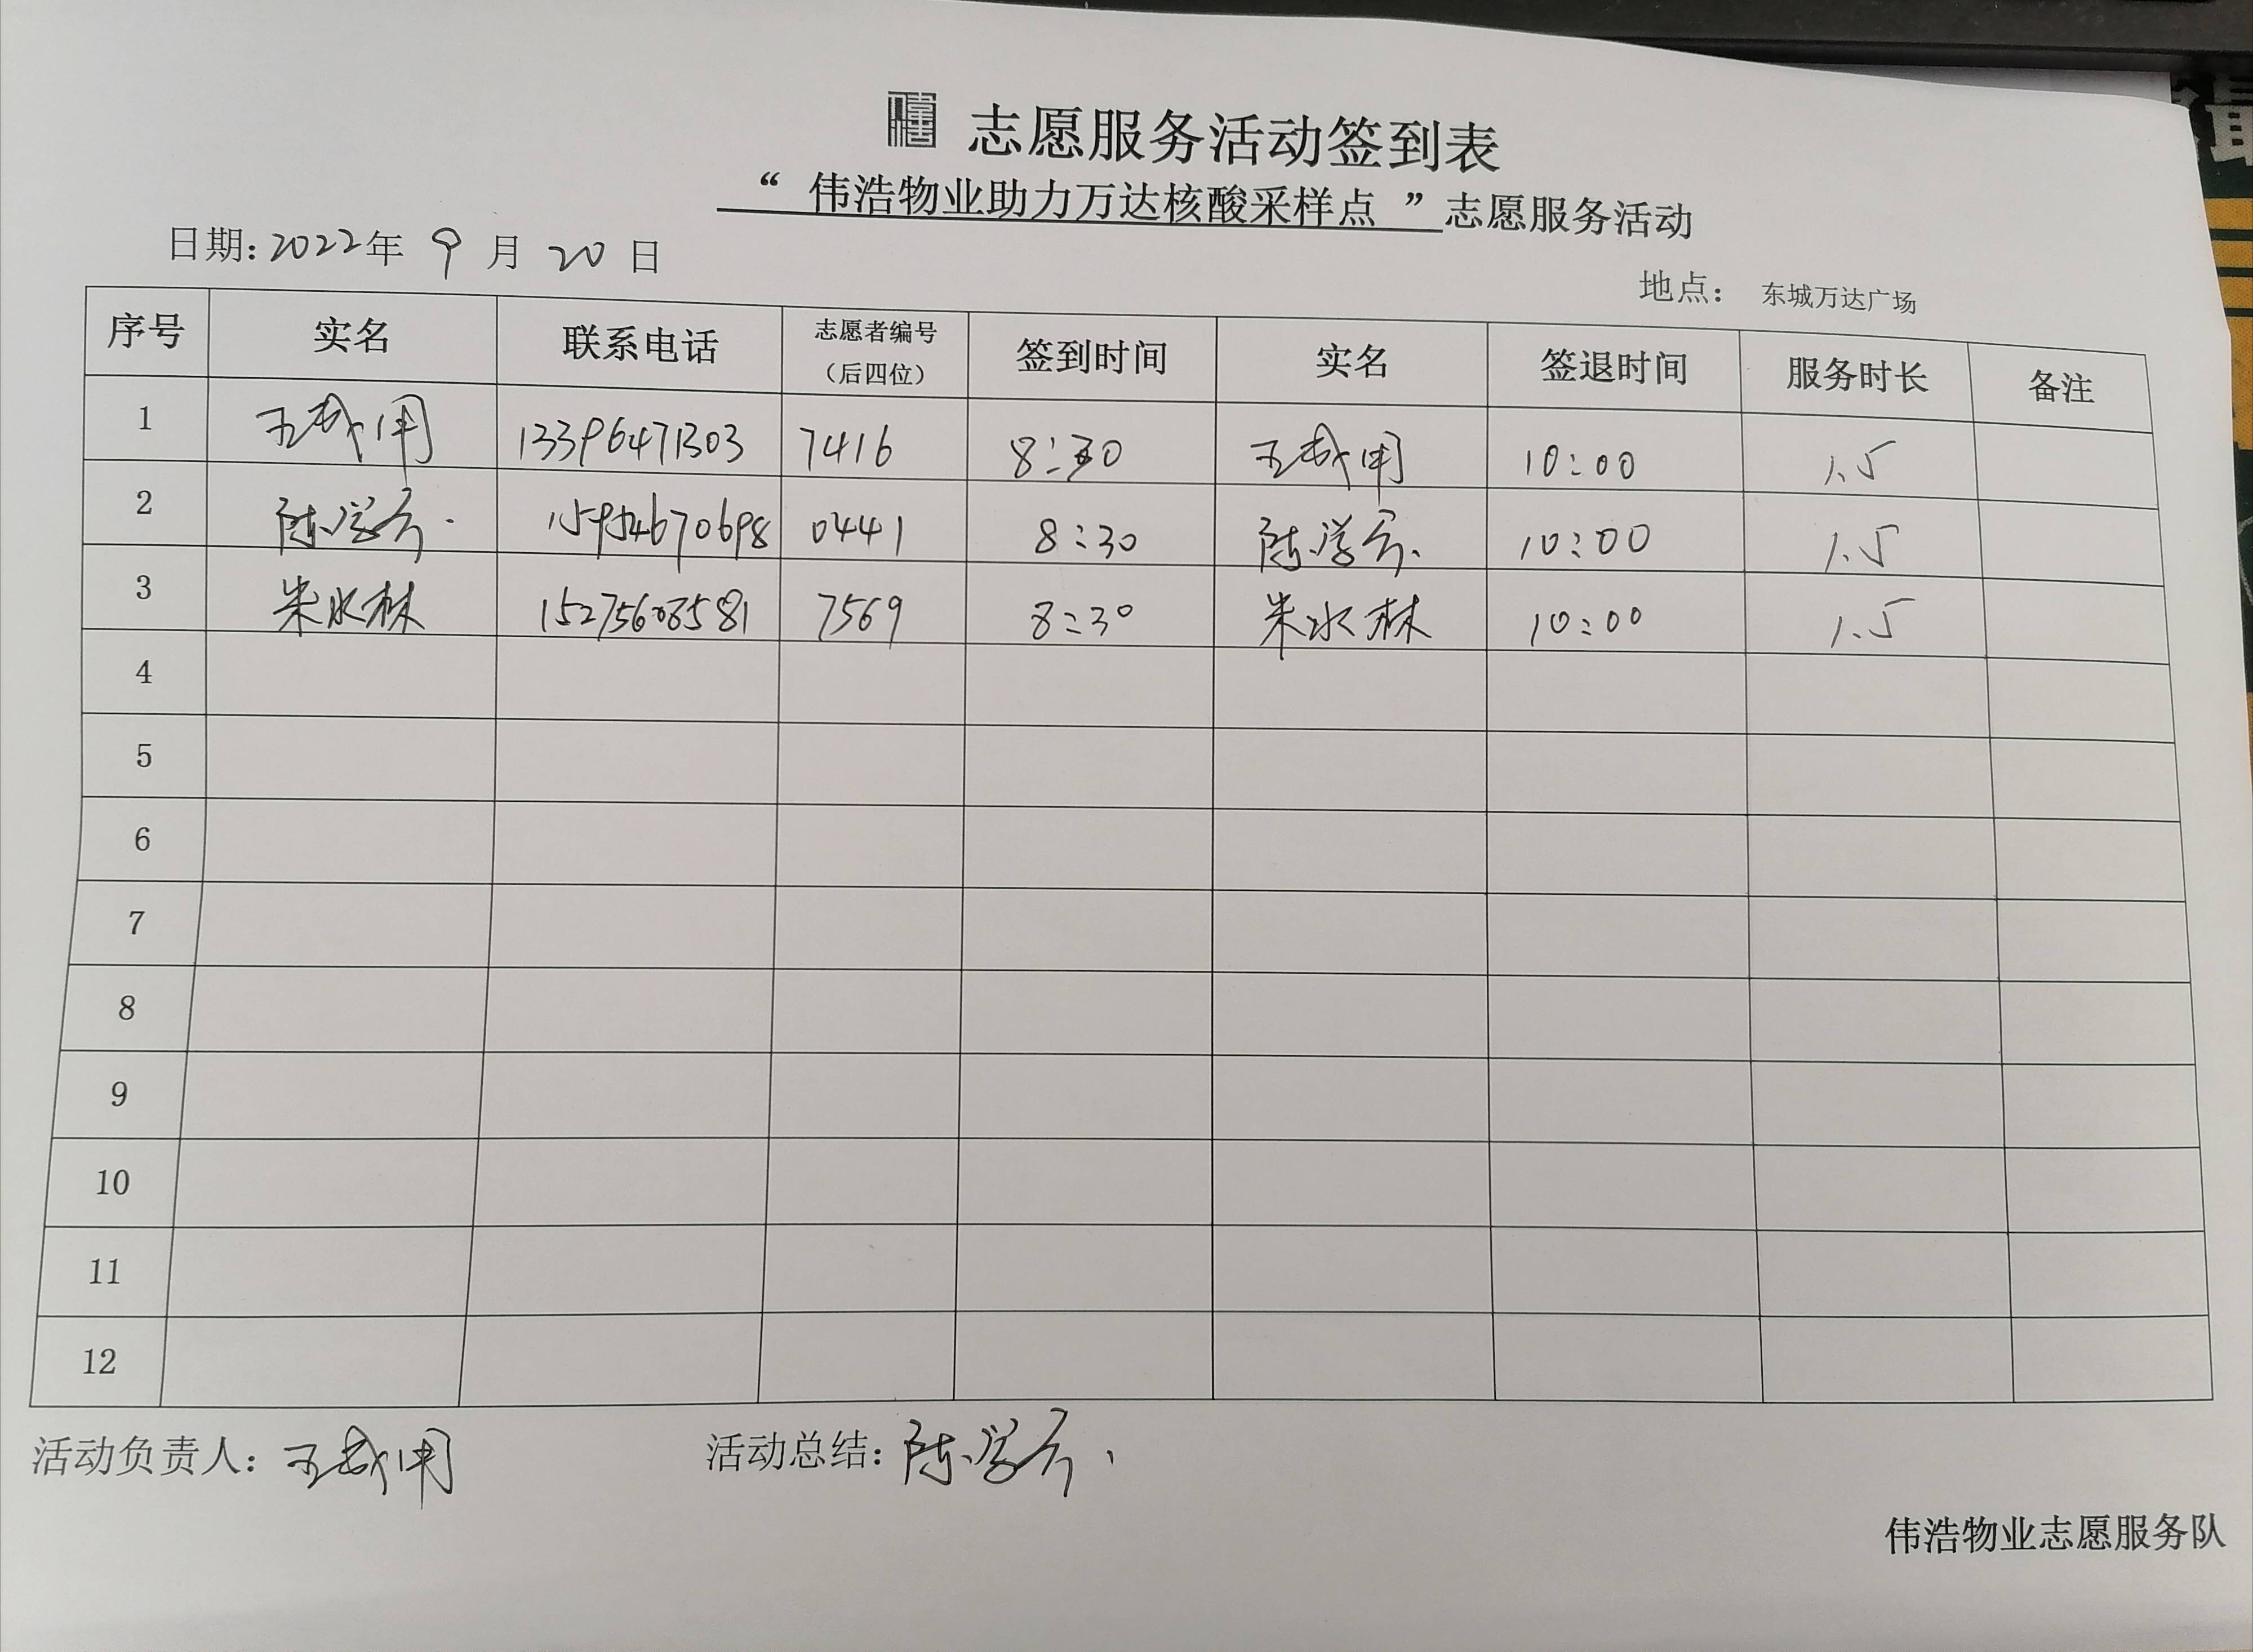 志愿服务活动签到表
“ 伟浩物业助力万达核酸采样点 ”志愿服务活动
日期:2022年 9 月 20 日
地点: 东城万达广场
序号 实名 联系电话 志愿者编号(后四位) 签到时间 实名 签退时间 服务时长 备注
1 13396471303 7416 8:30 10:00 1.5
2 陈学 15954670698 0441 8:30 陈学 10:00 1.5
3 朱水林 15275608581 7569 8:30 朱水林 10:00 1.5
4
5
6
7
8
9
10
11
12
活动负责人: 王 活动总结: 陈学
伟浩物业志愿服务队